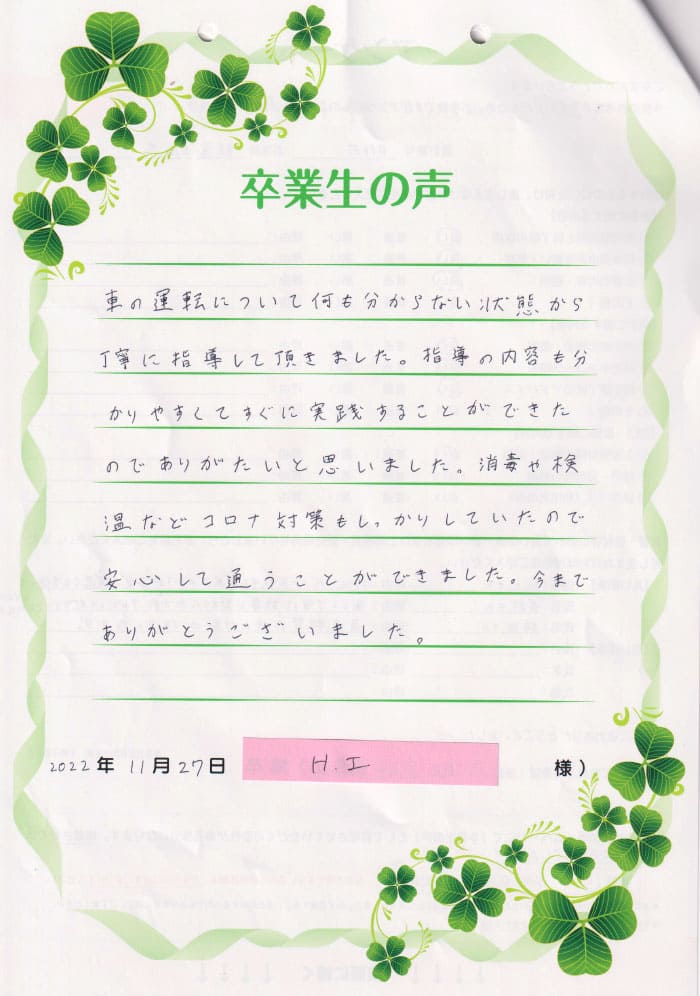 卒業生の声
車の運転について何も分からない状態から
丁寧に指導して頂きました。指導の内容も分
かりやすくてすぐに実践することができた
のでありがたいと思いました。消毒や検
温などコロナ対策もしっかりしていたので
安心して通うことができました。今まで
ありがとうございました。
2022年 11月27日 H.I 様)